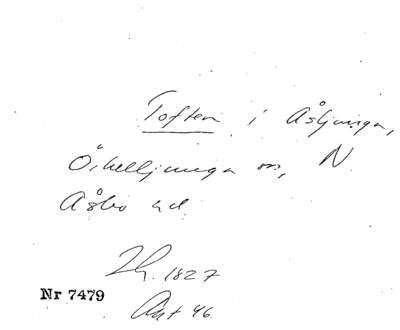 Toften i Åsljunga,
Örkelljunga sn, N.
Åsbo hd
Lh. 1827
Nr 7479
Ant 46.